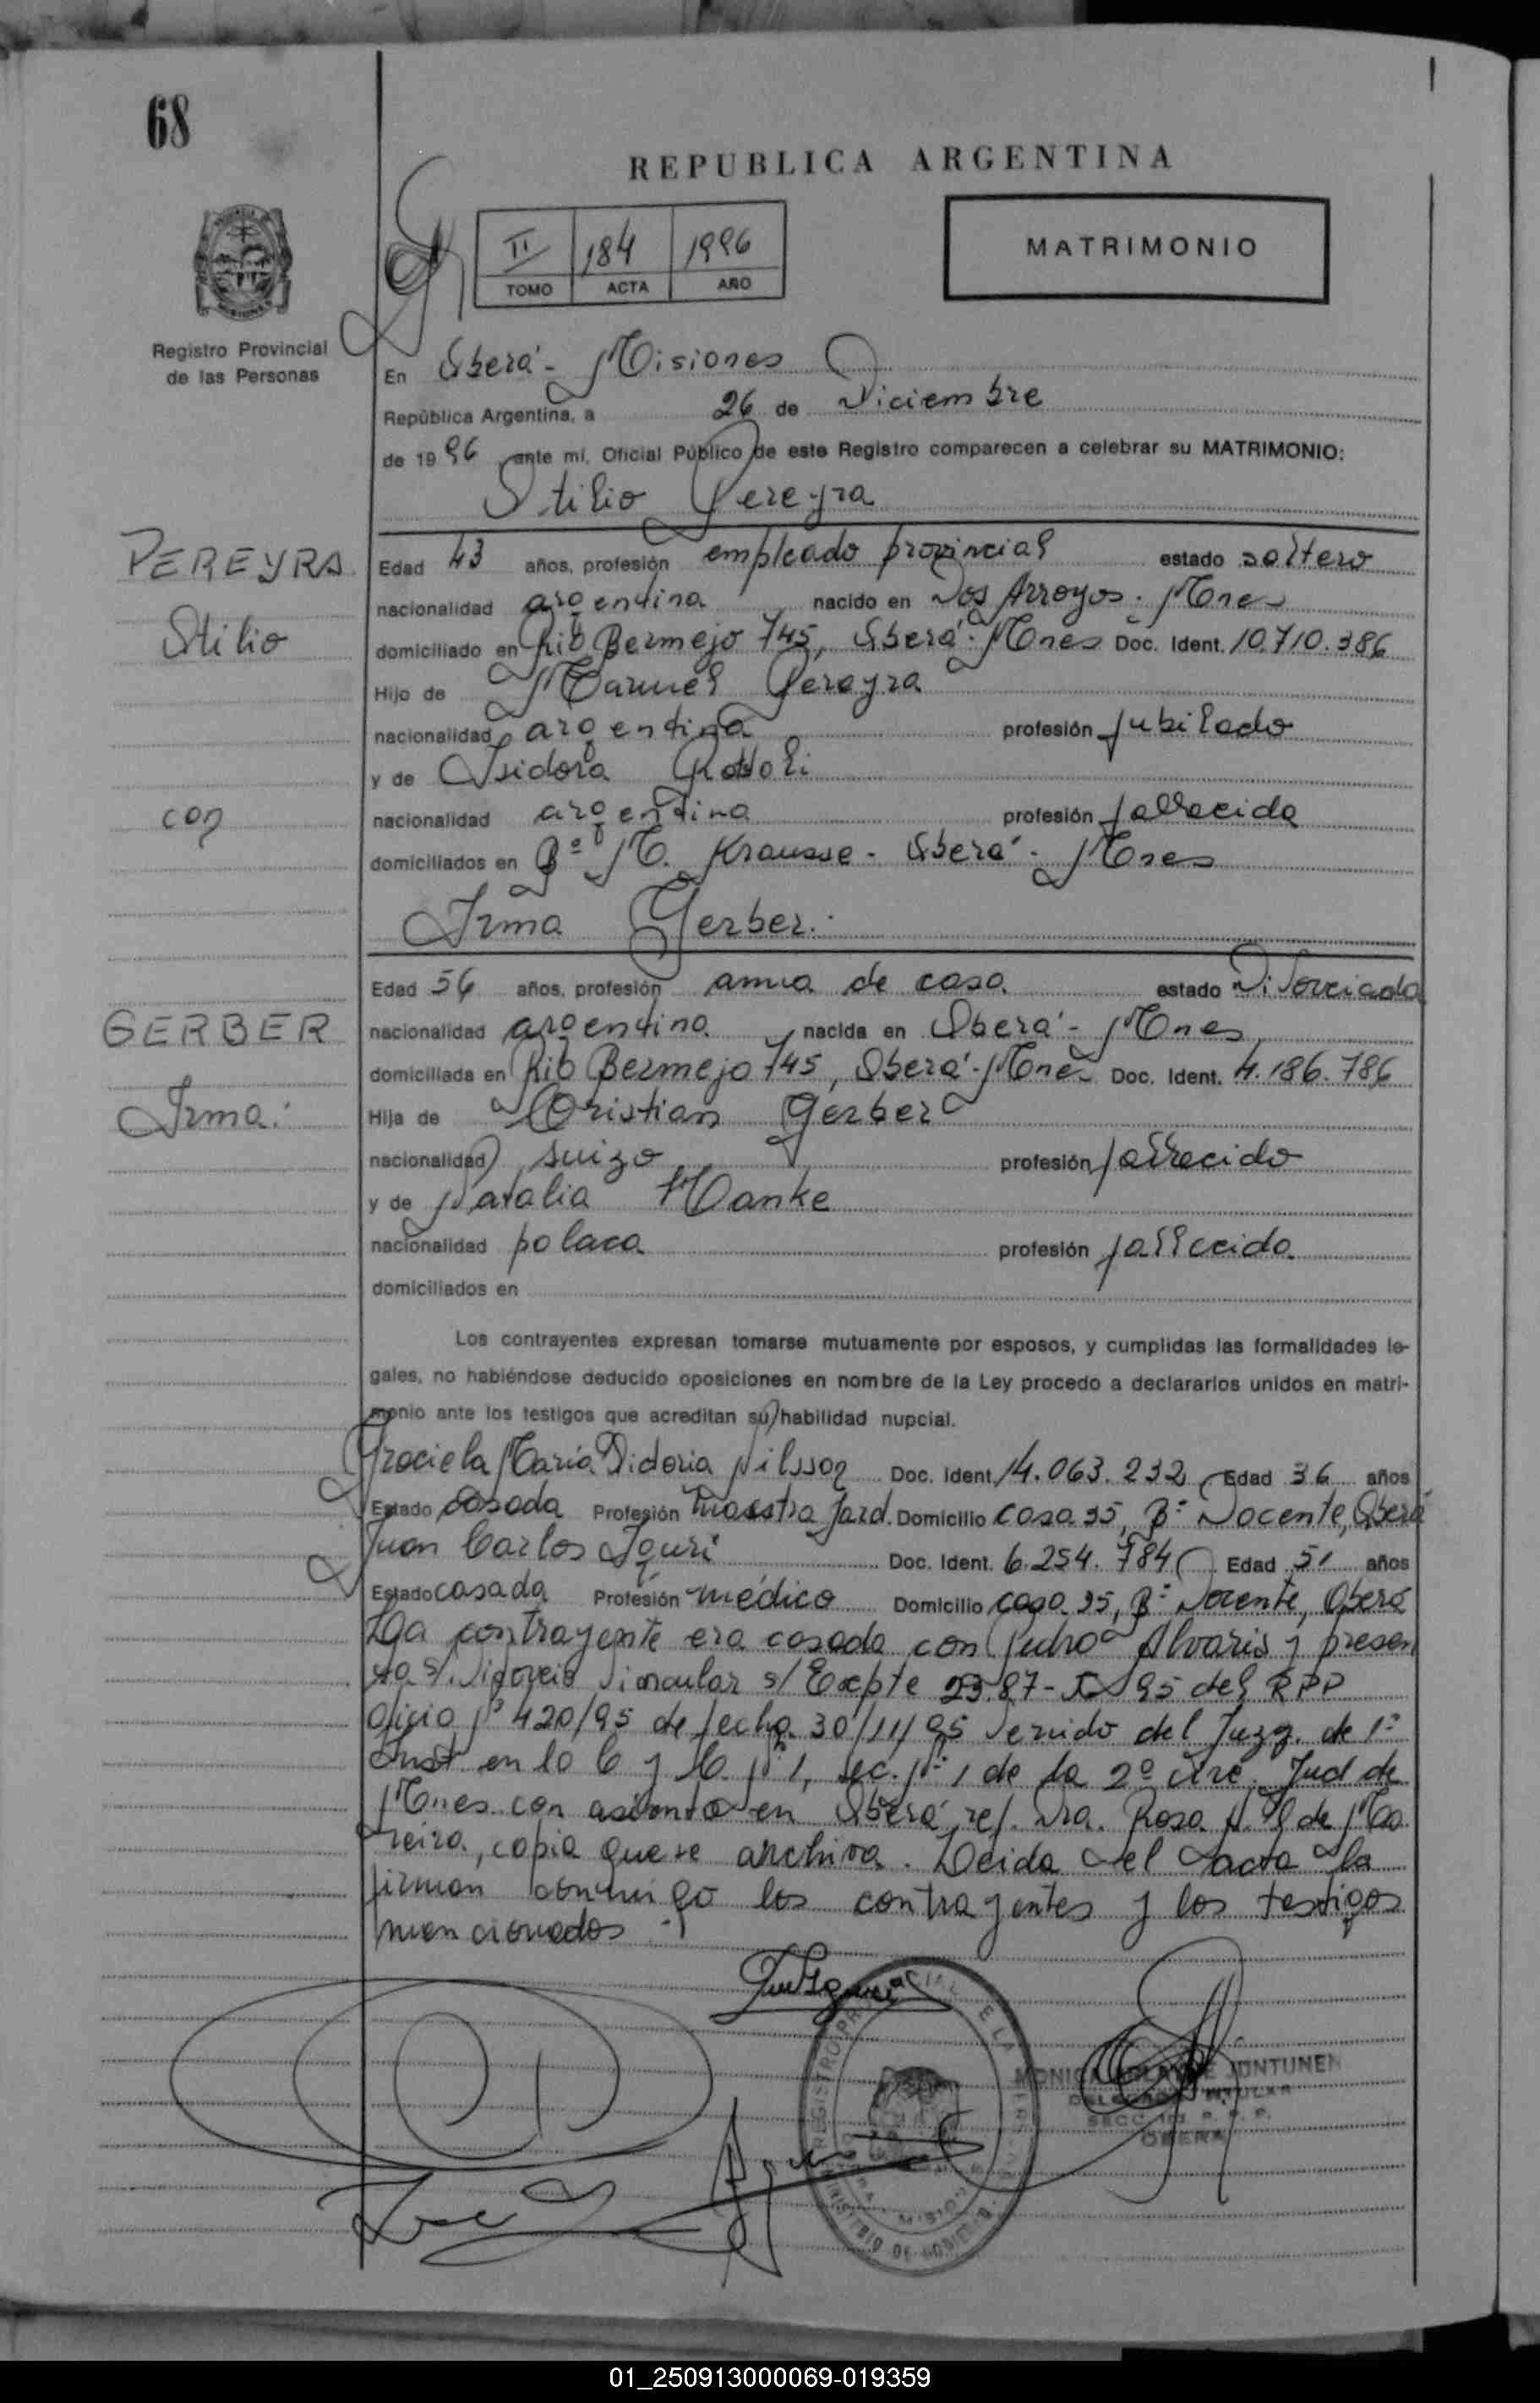 68
REPUBLICA ARGENTINA
II 184 1996
TOMO ACTA AÑO
MATRIMONIO
Registro Provincial
de las Personas
En Oberá - Misiones
República Argentina, a 26 de Diciembre
de 1996 ante mí, Oficial Público de este Registro comparecen a celebrar su MATRIMONIO:
Stilio Pereyra
PEREYRA
Stilio
con
GERBER
Irma.
Edad 43 años, profesión empleado provincial estado soltero
nacionalidad argentina nacido en Dos Arroyos - Mnes
domiciliado en Río Bermejo 745, Oberá - Mnes Doc. Ident. 10.710.386
Hijo de Manuel Pereyra
nacionalidad argentina profesión jubilado
y de Isidora
nacionalidad argentina profesión fallecida
domiciliados en Bº M. Krausse - Oberá - Mnes
Irma Gerber.
Edad 54 años, profesión ama de casa estado Divorciada
nacionalidad argentina nacida en Oberá - Mnes
domiciliada en Río Bermejo 745, Oberá - Mnes Doc. Ident. 4.186.786
Hija de Cristian Gerber
nacionalidad suizo profesión fallecido
y de Natalia Manke
nacionalidad polaca profesión fallecida
domiciliados en
Los contrayentes expresan tomarse mutuamente por esposos, y cumplidas las formalidades le-
gales, no habiéndose deducido oposiciones en nombre de la Ley procedo a declararlos unidos en matri-
monio ante los testigos que acreditan su habilidad nupcial.
Graciela María Victoria Nilsson Doc. Ident. 14.063.232 Edad 36 años
Estado casada Profesión maestra Jard. Domicilio casa 35, Bº Docente, Oberá
Juan Carlos Doc. Ident. 6.254.784 Edad 51 años
Estado casado Profesión médico Domicilio casa 35, Bº Docente, Oberá
La contrayente era casada con Pedro Alvaris y presen
ta s/ Divorcio Vincular s/ Expte 2387- 95 del RPP
Oficio Nº 420/95 de fecha 30/11/95 venido del Juzg. de 1º
Inst en lo C y C. Nº 1, sec. Nº 1 de la 2º circ. Jud de
Mnes con asiento en Oberá, ref. Dra. Rosa
copia que se archiva. Leida el acta la
firman conmigo los contrayentes y los testigos
mencionados.
MONICA JUNTUNEN
OBERA
01_250913000069-019359